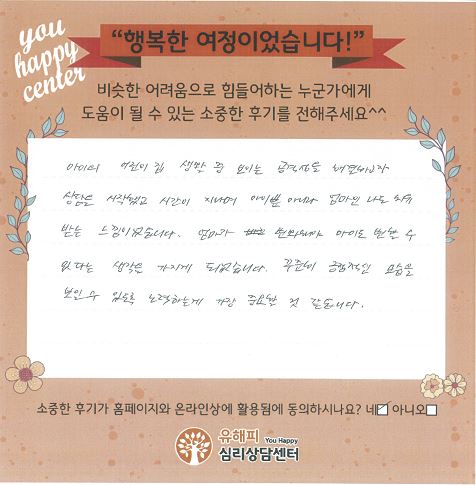 you
happy
center
“행복한 여정이었습니다!”
비슷한 어려움으로 힘들어하는 누군가에게
도움이 될 수 있는 소중한 후기를 전해주세요^^
아이의 어린이집 생활 중 보이는 공격성을 해결하고자
상담을 시작했고 시간이 지나며 아이뿐 아니라 엄마인 나도 치유
받는 느낌이었습니다. 엄마가 변화되어야 아이도 변할 수
있다는 생각을 가지게 되었습니다. 꾸준히 긍정적인 모습을
보일 수 있도록 노력하는게 가장 중요한 것 같습니다.
소중한 후기가 홈페이지와 온라인상에 활용됨에 동의하시나요? 네☑ 아니오☐
유해피 You Happy
심리상담센터